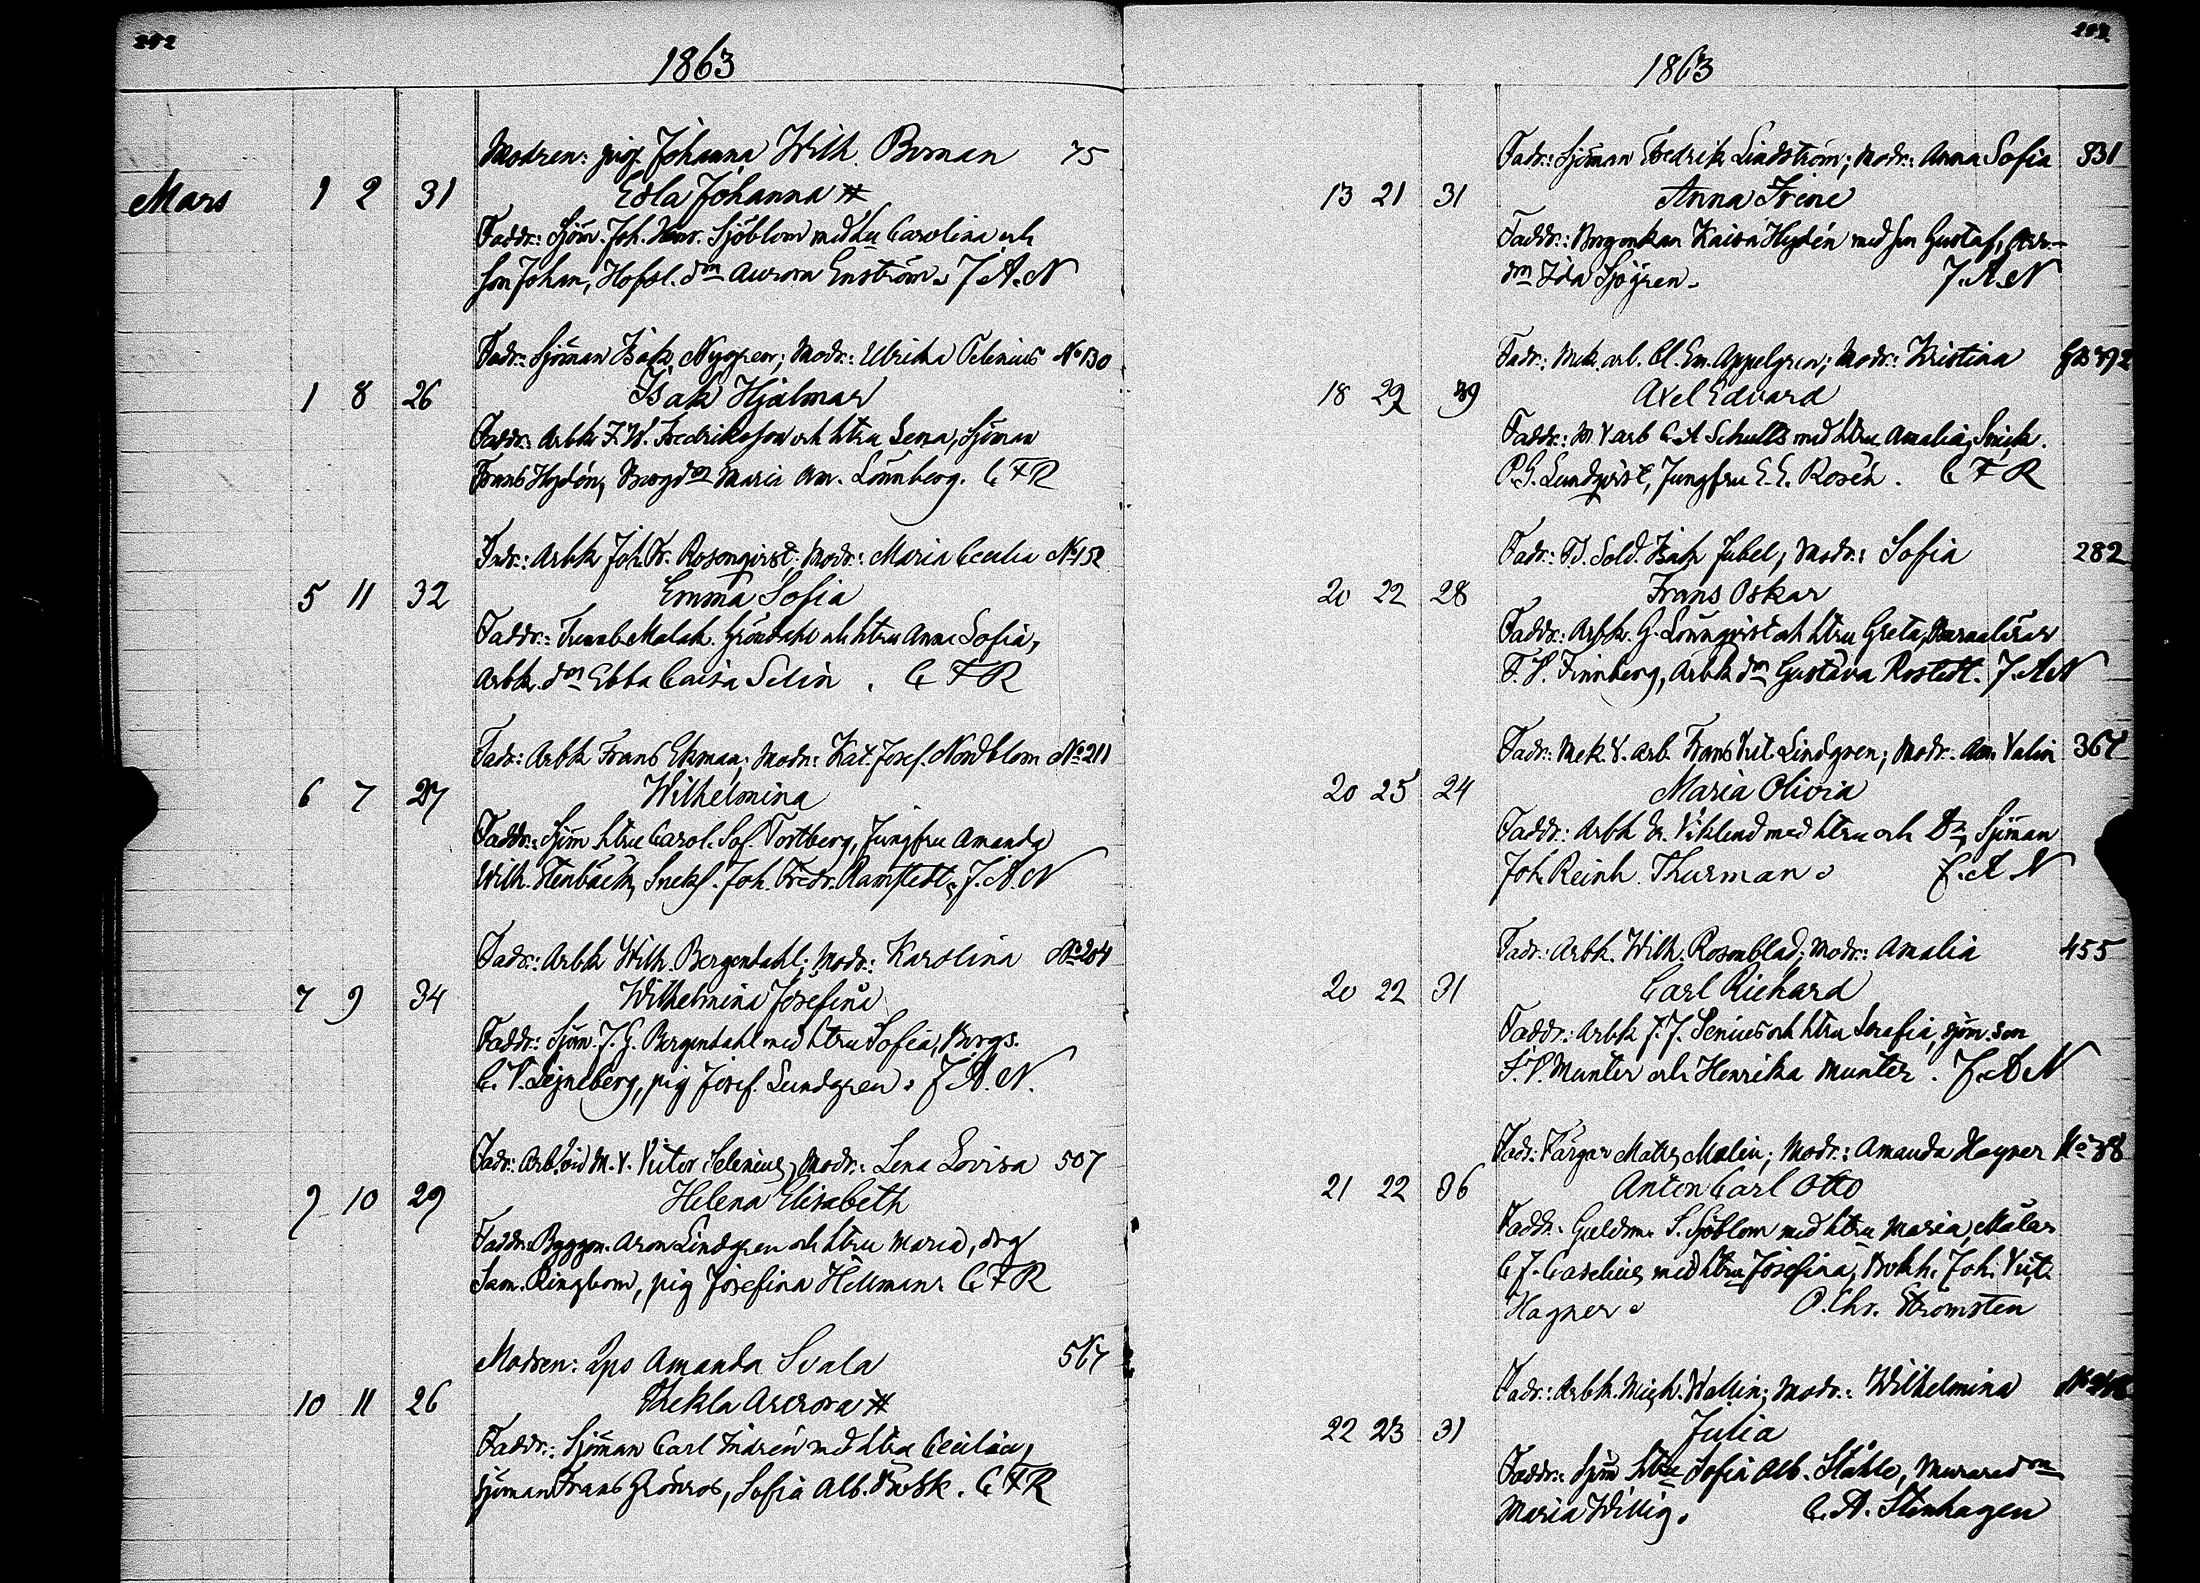 1863
Modren: pig. Johanna Wilh. Boman 75
Mars 1 2 31 Edla Johanna #
Faddr.: Sjöm. Joh. Henr. Sjöblom med hu Carolina och
son Johan, Hofsl. dn Aurora Enström. J. A. N
Fadr: Sjöman Isak Nygren; Modr: Ulrika Selenius No 130
1 8 26 Isak Hjalmar
Faddr: Arbk F. W. Fredriksson och htru Lena, Sjöman
Frans Hydén, Borgdn Maria Am. Lönnberg. C F R
Fadr: Arbk Joh. Fr. Rosenqvist; Modr: Maria Cecilia No 152
5 11 32 Emma Sofia
Faddr: Malak. Gröndahl och htru Anna Sofia,
Arbk. dn Ebba Caisa Selin. C F R
Fadr: Arbk Frans Ekman; Modr: Kat. Josef. Nordblom No 211
6 7 27 Wilhelmina
Faddr.: Sjöm htru Carol. Sof. Tortberg, Jungfru Amanda
Wilh. Stenbäck, Joh. Fredr. Ramstedt. J. A. N
Fadr: Arbk Wilh. Bergendahl; Modr: Karolina No 204
7 9 34 Wilhelmina Josefina
Faddr: Sjöm. J. G. Bergendahl med htru Sofia, Borgs.
C. V. Lejneberg, pig Josef. Lundgren. J. A. N.
Fadr: Arb. vid M. V. Victor Selenius, Modr: Lena Lovisa 507
9 10 29 Helena Elisabeth
Faddr: Byggm. Aron Lindgren och htru Maria, drg
Sam. Ringbom, pig Josefina Hellman. C F R
Modren: Lps Amanda Svala 567
10 11 26 Thekla Aurora #
Faddr.: Sjöman Carl Indrén med htru Cecilia,
sjöman Frans Grönros, Sofia Alb. C F R
1863
Fadr: Sjöman Fredrik Lindström; Modr: Anna Sofia 331
13 21 31 Anna Irene
Faddr: Borgenkan Kaisa Hydén med son Gustaf,
dn Ida Sjögren. J. A. N
Fadr: Mek. arb. Cl. Em. Appelgren; Modr: Kristina
18 29 39 Axel Edvard
Faddr: M. V arb C. A Schults med htru Amalia, Snick.
P. G. Lundqvist, Jungfru E. E. Rosén. C F R
Fadr: Sold. Isak Jubel; Modr: Sofia 282
20 22 28 Frans Oskar
Faddr: Arbk. G. Lönnqvist och htru Greta,
F. V. Finnberg, Arbk dn Gustava Rostedt. J. A N
Fadr: Mek. V. Arb. Frans Vict. Lindgren; Modr. Am. Valin 367
20 25 24 Maria Olivia
Faddr: Arbk Viklund med htru och Dr, Sjöman
Joh. Reinh. Thurman. J. A N
Fadr: Arbk. Wilh. Rosenblad; Modr: Amalia 455
20 22 31 Carl Richard
Faddr: Arbk J. J. Senius och htru Serafia, sjöm. son
F. V. Munter och Henrika Munter. J. A N
Fadr: Färgar Matts Malin; Modr: Amanda Hagner No 38
21 22 36 Anton Carl Otto
Faddr. Guldsm. S. Sjöblom med htru Maria, Målar
C. J. Caselius med htru Josefina, Bokh. Joh. Vict.
Hagner. O. Chr. Strömsten
Fadr: Arbk. Mich. Wallin; Modr: Wilhelmina
22 23 31 Julia
Faddr: Sjöm htru Sofia Alb. Ståhle, Muraredn
Maria Willig. C. A. Stenhagen